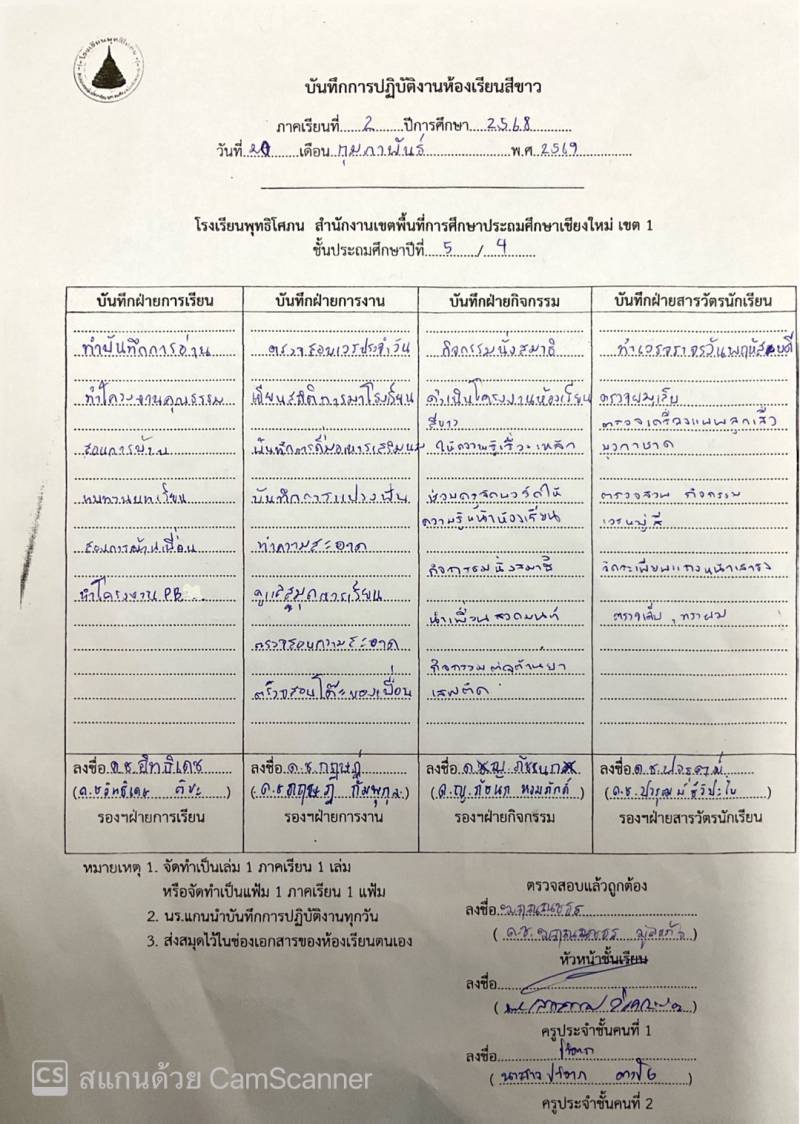 บันทึกการปฏิบัติงานห้องเรียนสีขาว
ภาคเรียนที่ 2 ปีการศึกษา 2568
วันที่ 20 เดือน กุมภาพันธ์ พ.ศ 2569
โรงเรียนพุทธิโศภน สำนักงานเขตพื้นที่การศึกษาประถมศึกษาเชียงใหม่ เขต 1
ชั้นประถมศึกษาปีที่ 5 / 4
บันทึกฝ่ายการเรียน
ทำบันทึกการอ่าน
ทำโครงงานคุณธรรม
สอนการบ้าน
ทบทวนบทเรียน
สอนการบ้านเพื่อน
ทำโครงงาน PB
ลงชื่อ ด.ช.อิทธิเดช
(ด.ช อิทธิเดช)
รองฯฝ่ายการเรียน
บันทึกฝ่ายการงาน
ตรวจสอบเวรประจำวัน
เขียนสถิติการมาโรงเรียน
บันทึกการดื่มอาหารเสริมนม
บันทึกการแปรงฟัน
ทำความสะอาด
ดูแลสมุดการเรียน
ตรวจสอบความสะอาด
ตรวจสอบโต๊ะของเพื่อน
ลงชื่อ ด.ช กฤษฎ์
(ด.ช กฤษฎิ์ กัมพุกุล)
รองฯฝ่ายการงาน
บันทึกฝ่ายกิจกรรม
กิจกรรมนั่งสมาธิ
ดำเนินโครงงานห้องเรียน
สีขาว
ให้ความรู้เรื่อง เหล้า
ช่วยตกแต่งบอร์ดให้
ความรู้หน้าห้องเรียน
กิจกรรมนั่งสมาธิ
นำเพื่อนสวดมนต์
กิจกรรมต่อต้านยา
เสพติด
ลงชื่อ
(ด.ญ.ภัชนก หอมภักดิ์)
รองฯฝ่ายกิจกรรม
บันทึกฝ่ายสารวัตรนักเรียน
ทำเวรจราจรวันพฤหัสบดี
ตรวจผมเล็บ
ตรวจเครื่องแบบลูกเสือ
ยุวกาชาด
ตรวจสวน กิจกรรม
เวรหมู่สี
จัดระเบียบแถวหน้าเสาธง
ตรวจเล็บ , ทรงผม
ลงชื่อ ด.ช.
(ด.ช.)
รองฯฝ่ายสารวัตรนักเรียน
หมายเหตุ 1. จัดทำเป็นเล่ม 1 ภาคเรียน 1 เล่ม
หรือจัดทำเป็นแฟ้ม 1 ภาคเรียน 1 แฟ้ม
2. นร.แกนนำบันทึกการปฏิบัติงานทุกวัน
3. ส่งสมุดไว้ในช่องเอกสารของห้องเรียนตนเอง
ตรวจสอบแล้วถูกต้อง
ลงชื่อ
(ด.ช.)
หัวหน้าชั้นเรียน
ลงชื่อ
ครูประจำชั้นคนที่ 1
ลงชื่อ
(นางสาว)
ครูประจำชั้นคนที่ 2
CS สแกนด้วย CamScanner